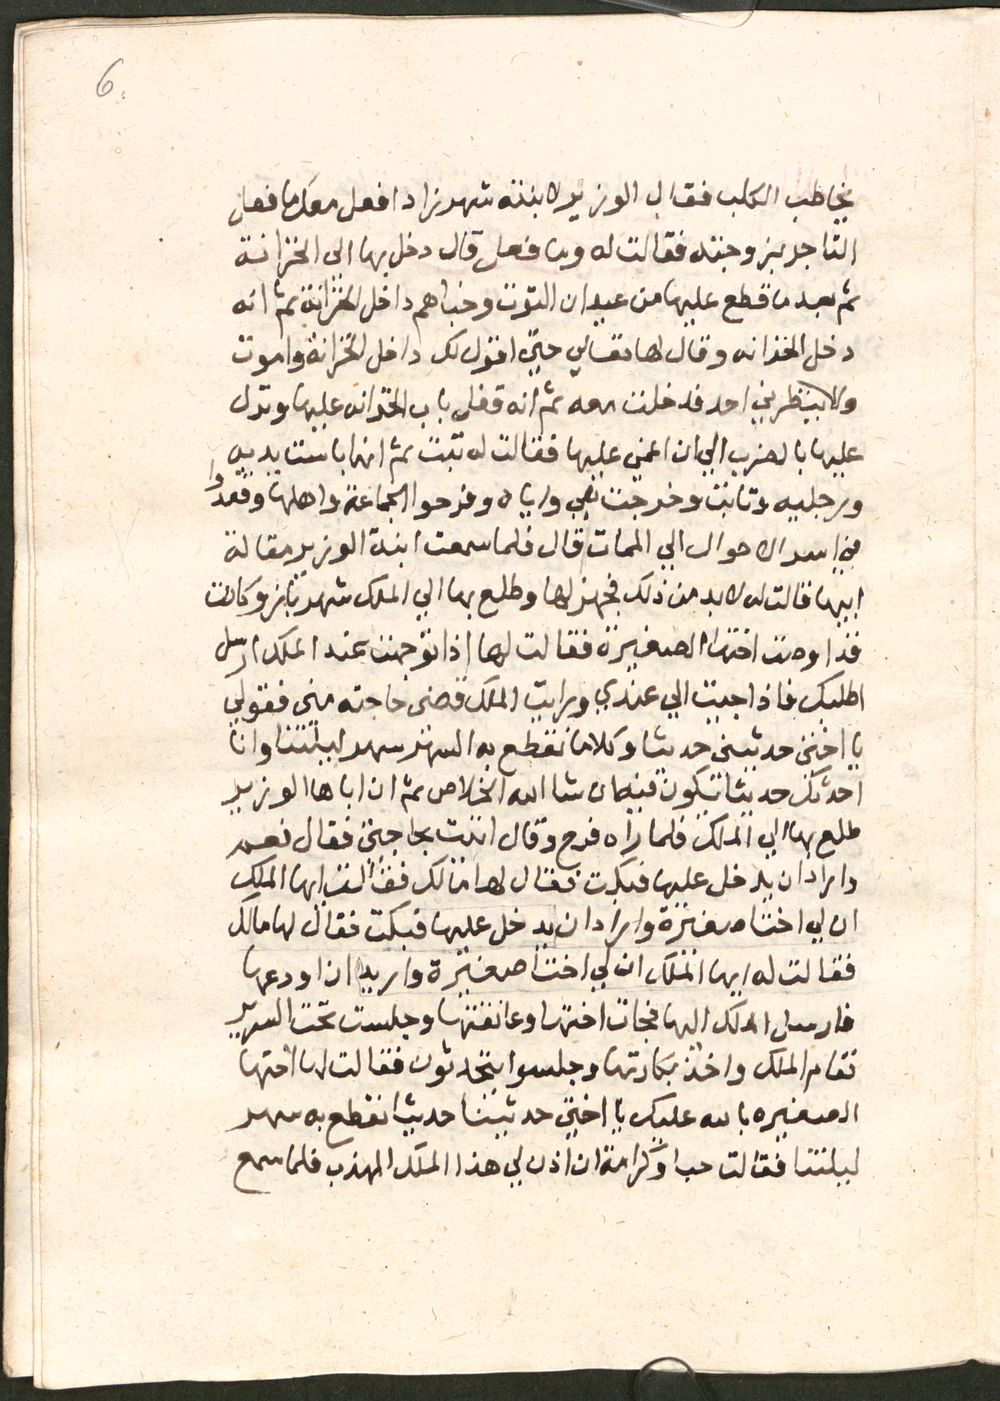 6
يخاطب الكلب فقال الوزير لابنته شهرزاد افعل معك ما فعل
التاجر بزوجته فقالت له وما فعل قال دخل بها الى الخزانة
ثم بعد ما قطع عليها من عيدان التوت وخباهم داخل الخزانة ثم انه
دخل الخزانه وقال لها تعالي حتي اقول لك داخل الخزانة واموت
ولا ينظرني احد فدخلت معه ثم انه قفل باب الخزانه عليها ونزل
عليها بالضرب الي ان اغمي عليها فقالت له تبت ثم انها باست يديه
ورجليه وتابت وخرجت هي واياه وفرحوا الجماعة واهلها وقعدوا
في اسر الاحوال الي الممات قال فلما سمعت ابنة الوزير مقالة
ابيها قالت له لا بد من ذلك فجهزلها وطلع بها الي الملك شهرباز وكانت
قد اوصت اختها الصغيرة فقالت لها اذا توجهت عند الملك ارسل
اطلبك فاذا جيت الي عندي ورايت الملك قضى حاجته منى فقولي
يا اختى حدثينى حديثا وكلاما نقطع به السهر سهر ليلتنا وانا
احدثك حديثا تكون فيه ان شا الله الخلاص ثم ان اباها الوزير
طلع بها الي الملك فلما راه فرح وقال اتيت بحاجتى فقال نعم
واراد ان يدخل عليها فبكت فقال لها مالك فقالت ايها الملك
ان لي اختا صغيرة واراد ان يدخل عليها فبكت فقال لها مالك
فقالت له ايها الملك ان لي اختا صغيرة واريد ان اودعها
فارسل الملك اليها فجات اختها وعانقتها وجلست تحت السرير
فقام الملك واخذ بكارتها وجلسوا يتحدثون فقالت لها اختها
الصغيره بالله عليك يا اختي حدثينا حديثا نقطع به سهر
ليلتنا فقالت حبا وكرامة ان اذن لي هذا الملك المهذب فلما سمع